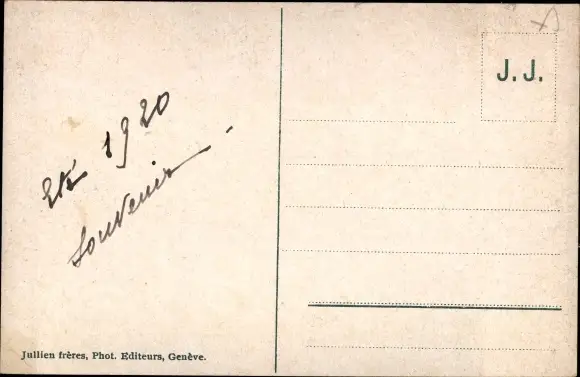 Eté 1920
Souvenir -
J. J.
Jullien frères, Phot. Editeurs, Genève.